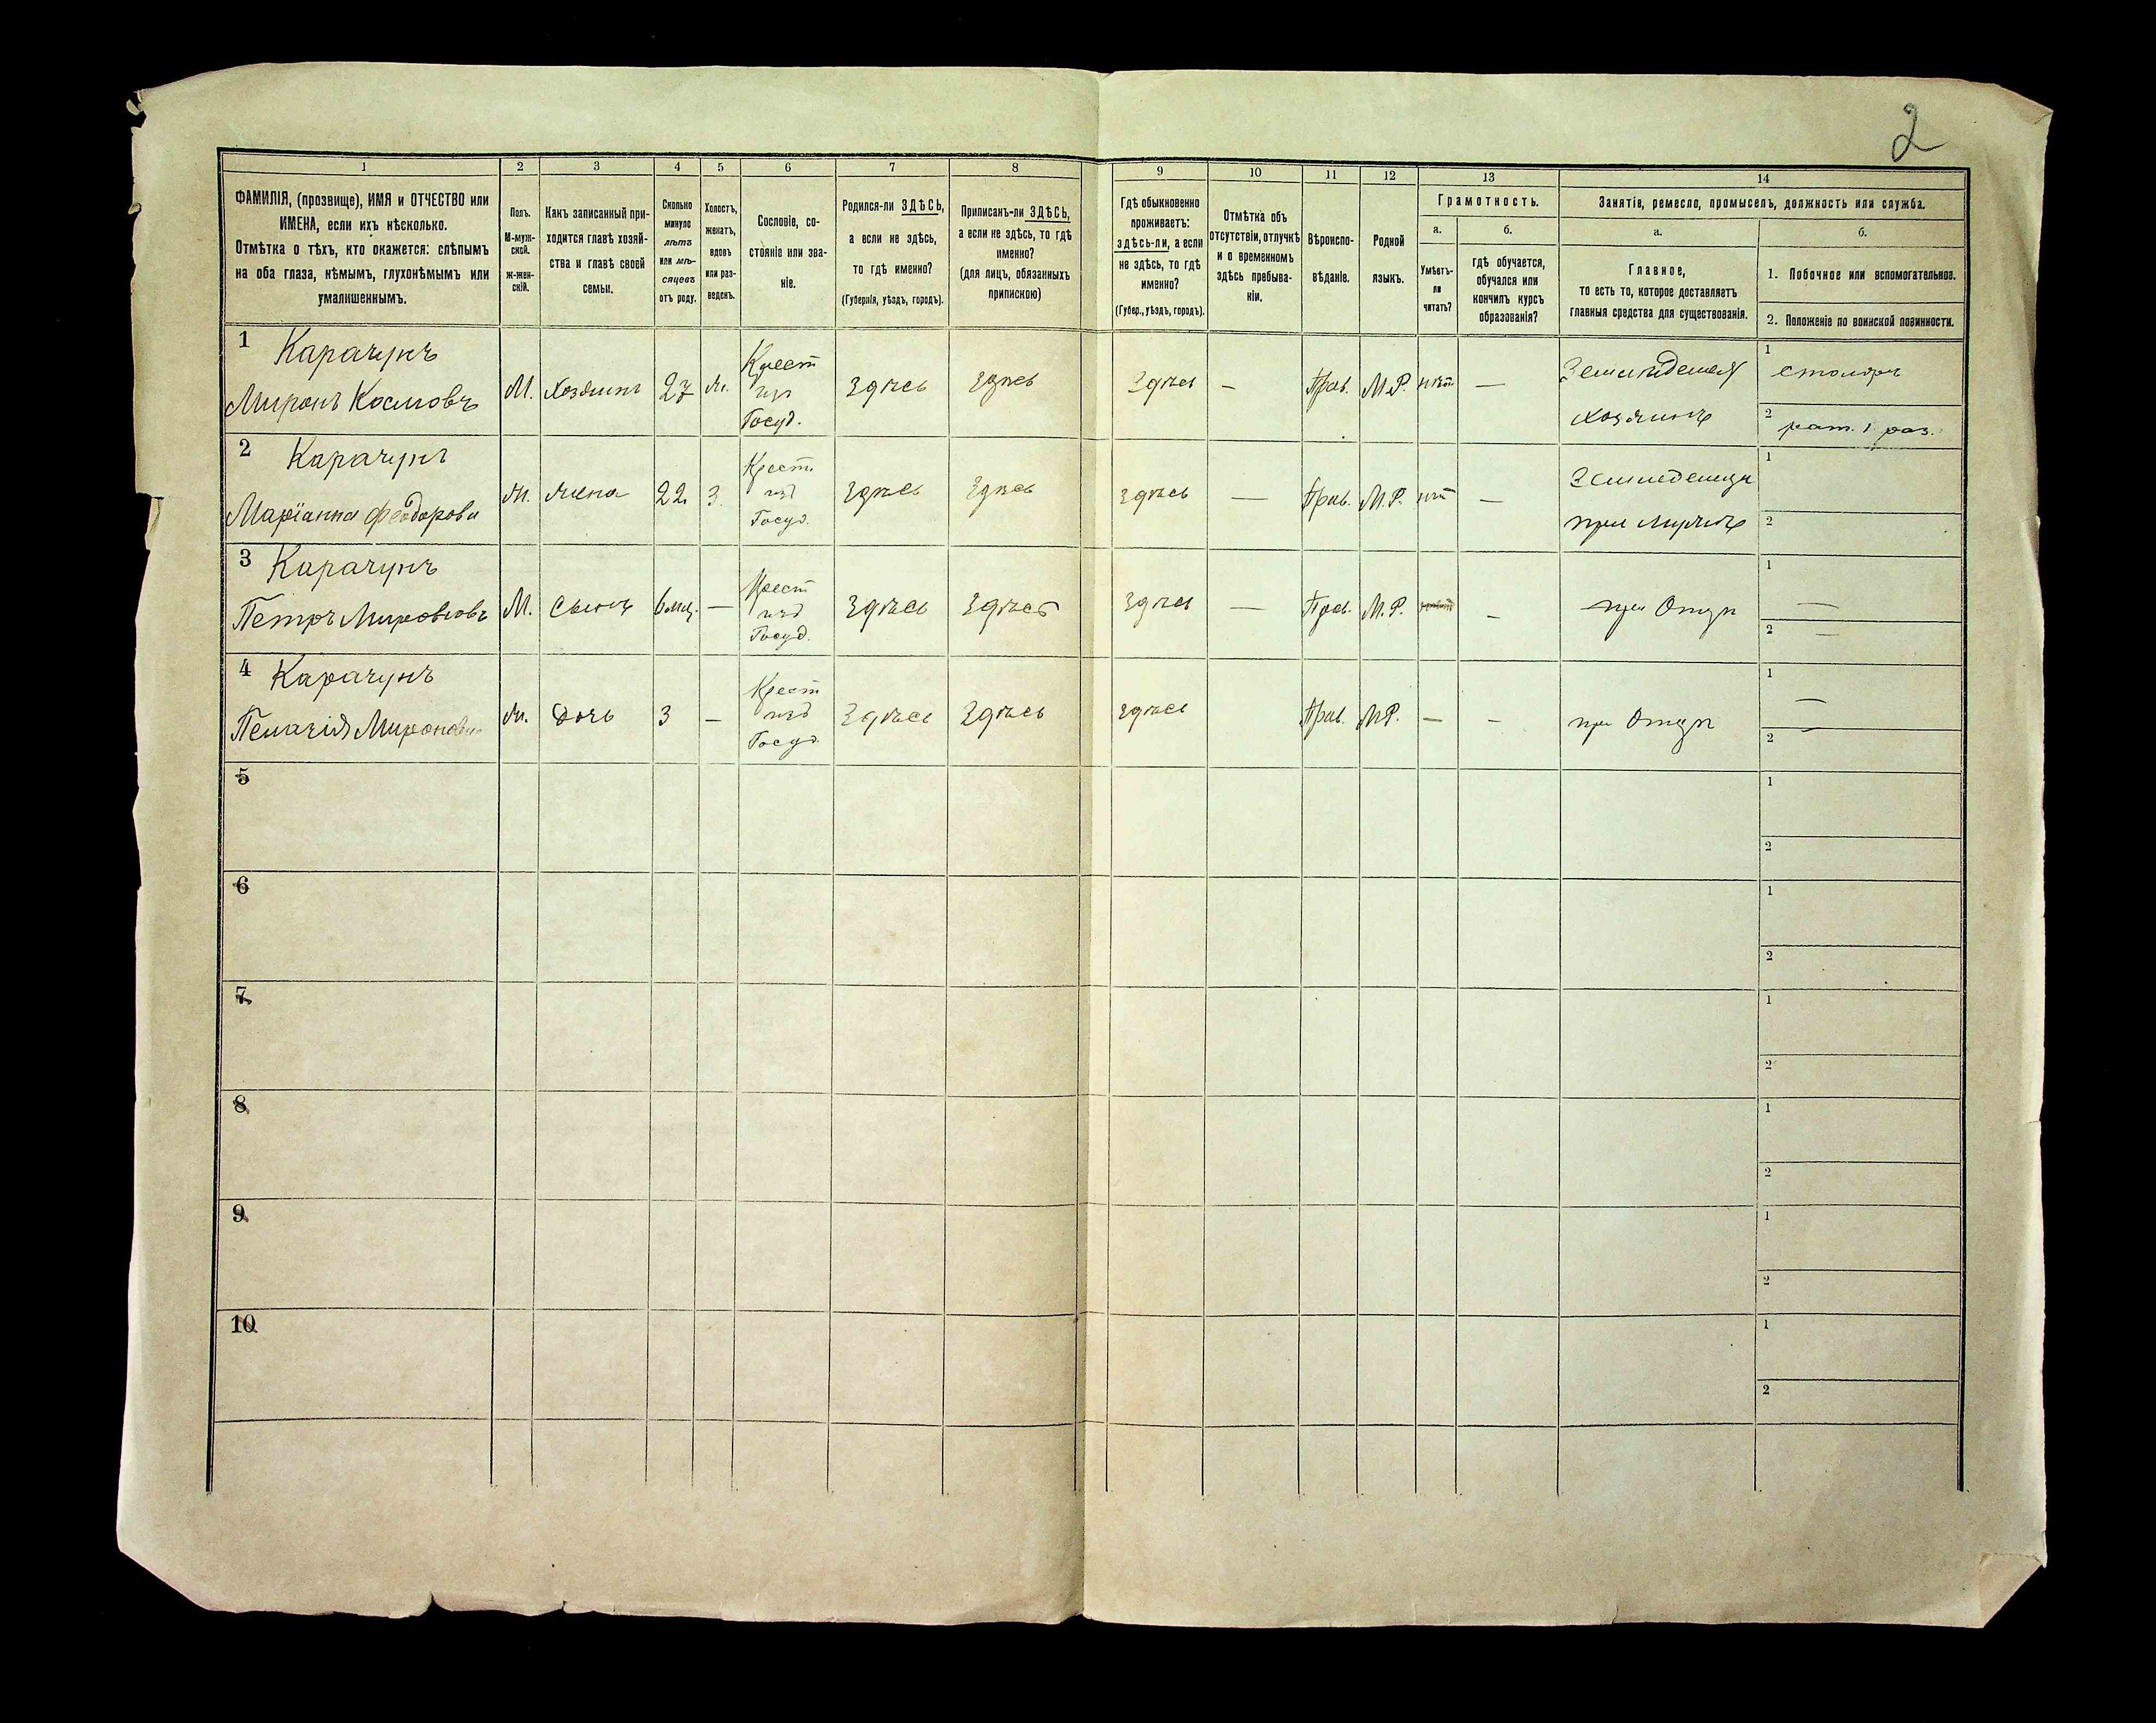 2
1 2 3 4 5 6 7 8 9 10 11 12 13 14
ФАМИЛІЯ, (прозвище), ИМЯ и ОТЧЕСТВО или
ИМЕНА, если ихъ нѣсколько.
Отмѣтка о тѣхъ, кто окажется: слѣпымъ
на оба глаза, нѣмымъ, глухонѣмымъ или
умалишеннымъ.
Полъ.
М-муж-
ской.
Ж-жен-
скій.
Какъ записанный при-
ходится главѣ хозяй-
ства и главѣ своей
семьи.
Сколько
минуло
лѣтъ
или мѣ-
сяцевъ
отъ роду.
Холостъ,
женатъ,
вдовъ
или раз-
веденъ.
Сословіе, со-
стояніе или зва-
ніе.
Родился-ли ЗДѢСЬ,
а если не здѣсь,
то гдѣ именно?
(Губернія, уѣздъ, городъ).
Приписанъ-ли ЗДѢСЬ,
а если не здѣсь, то гдѣ
именно?
(для лицъ, обязанныхъ
припискою)
Гдѣ обыкновенно
проживаетъ:
здѣсь-ли, а если
не здѣсь, то гдѣ
именно?
(Губер., уѣздъ, городъ).
Отмѣтка объ
отсутствіи, отлучкѣ
и о временномъ
здѣсь пребыва-
ніи.
Вѣроиспо-
вѣданіе.
Родной
языкъ.
Грамотность.
а.
Умѣетъ-
ли
читать?
б.
гдѣ обучается,
обучался или
кончилъ курсъ
образованія?
Занятіе, ремесло, промыселъ, должность или служба.
а.
Главное,
то есть то, которое доставляетъ
главныя средства для существованія.
б.
1. Побочное или вспомогательное.
2. Положеніе по воинской повинности.
1 Карачунъ
Миронъ Космовъ
М. Хозяинъ 27 ж.
Крест
изъ
Госуд.
Здѣсь Здѣсь Здѣсь — Прав. М.Р. нѣт —
Земледелія
хозяинъ
1 столяръ
2 рат. 1 раз.
2 Карачунъ
Маріанна Феодорова
Ж. жена 22 З.
Крест.
изъ
Госуд.
Здѣсь Здѣсь Здѣсь — Прав. М.Р. нѣт —
при мужѣ
1
2
3 Карачунъ
Петръ Мироновъ
М. Сынъ 6 мц. —
Крест
изъ
Госуд.
Здѣсь Здѣсь Здѣсь — Прав. М.Р. —
при Отцѣ
1 —
2 —
4 Карачунъ
Пелагія Миронова
Ж. Дочь 3 —
Крест
изъ
Госуд.
Здѣсь Здѣсь Здѣсь Прав. М.Р. — —
при Отцѣ
1 —
2 —
5
1
2
6
1
2
7
1
2
8
1
2
9
1
2
10
1
2